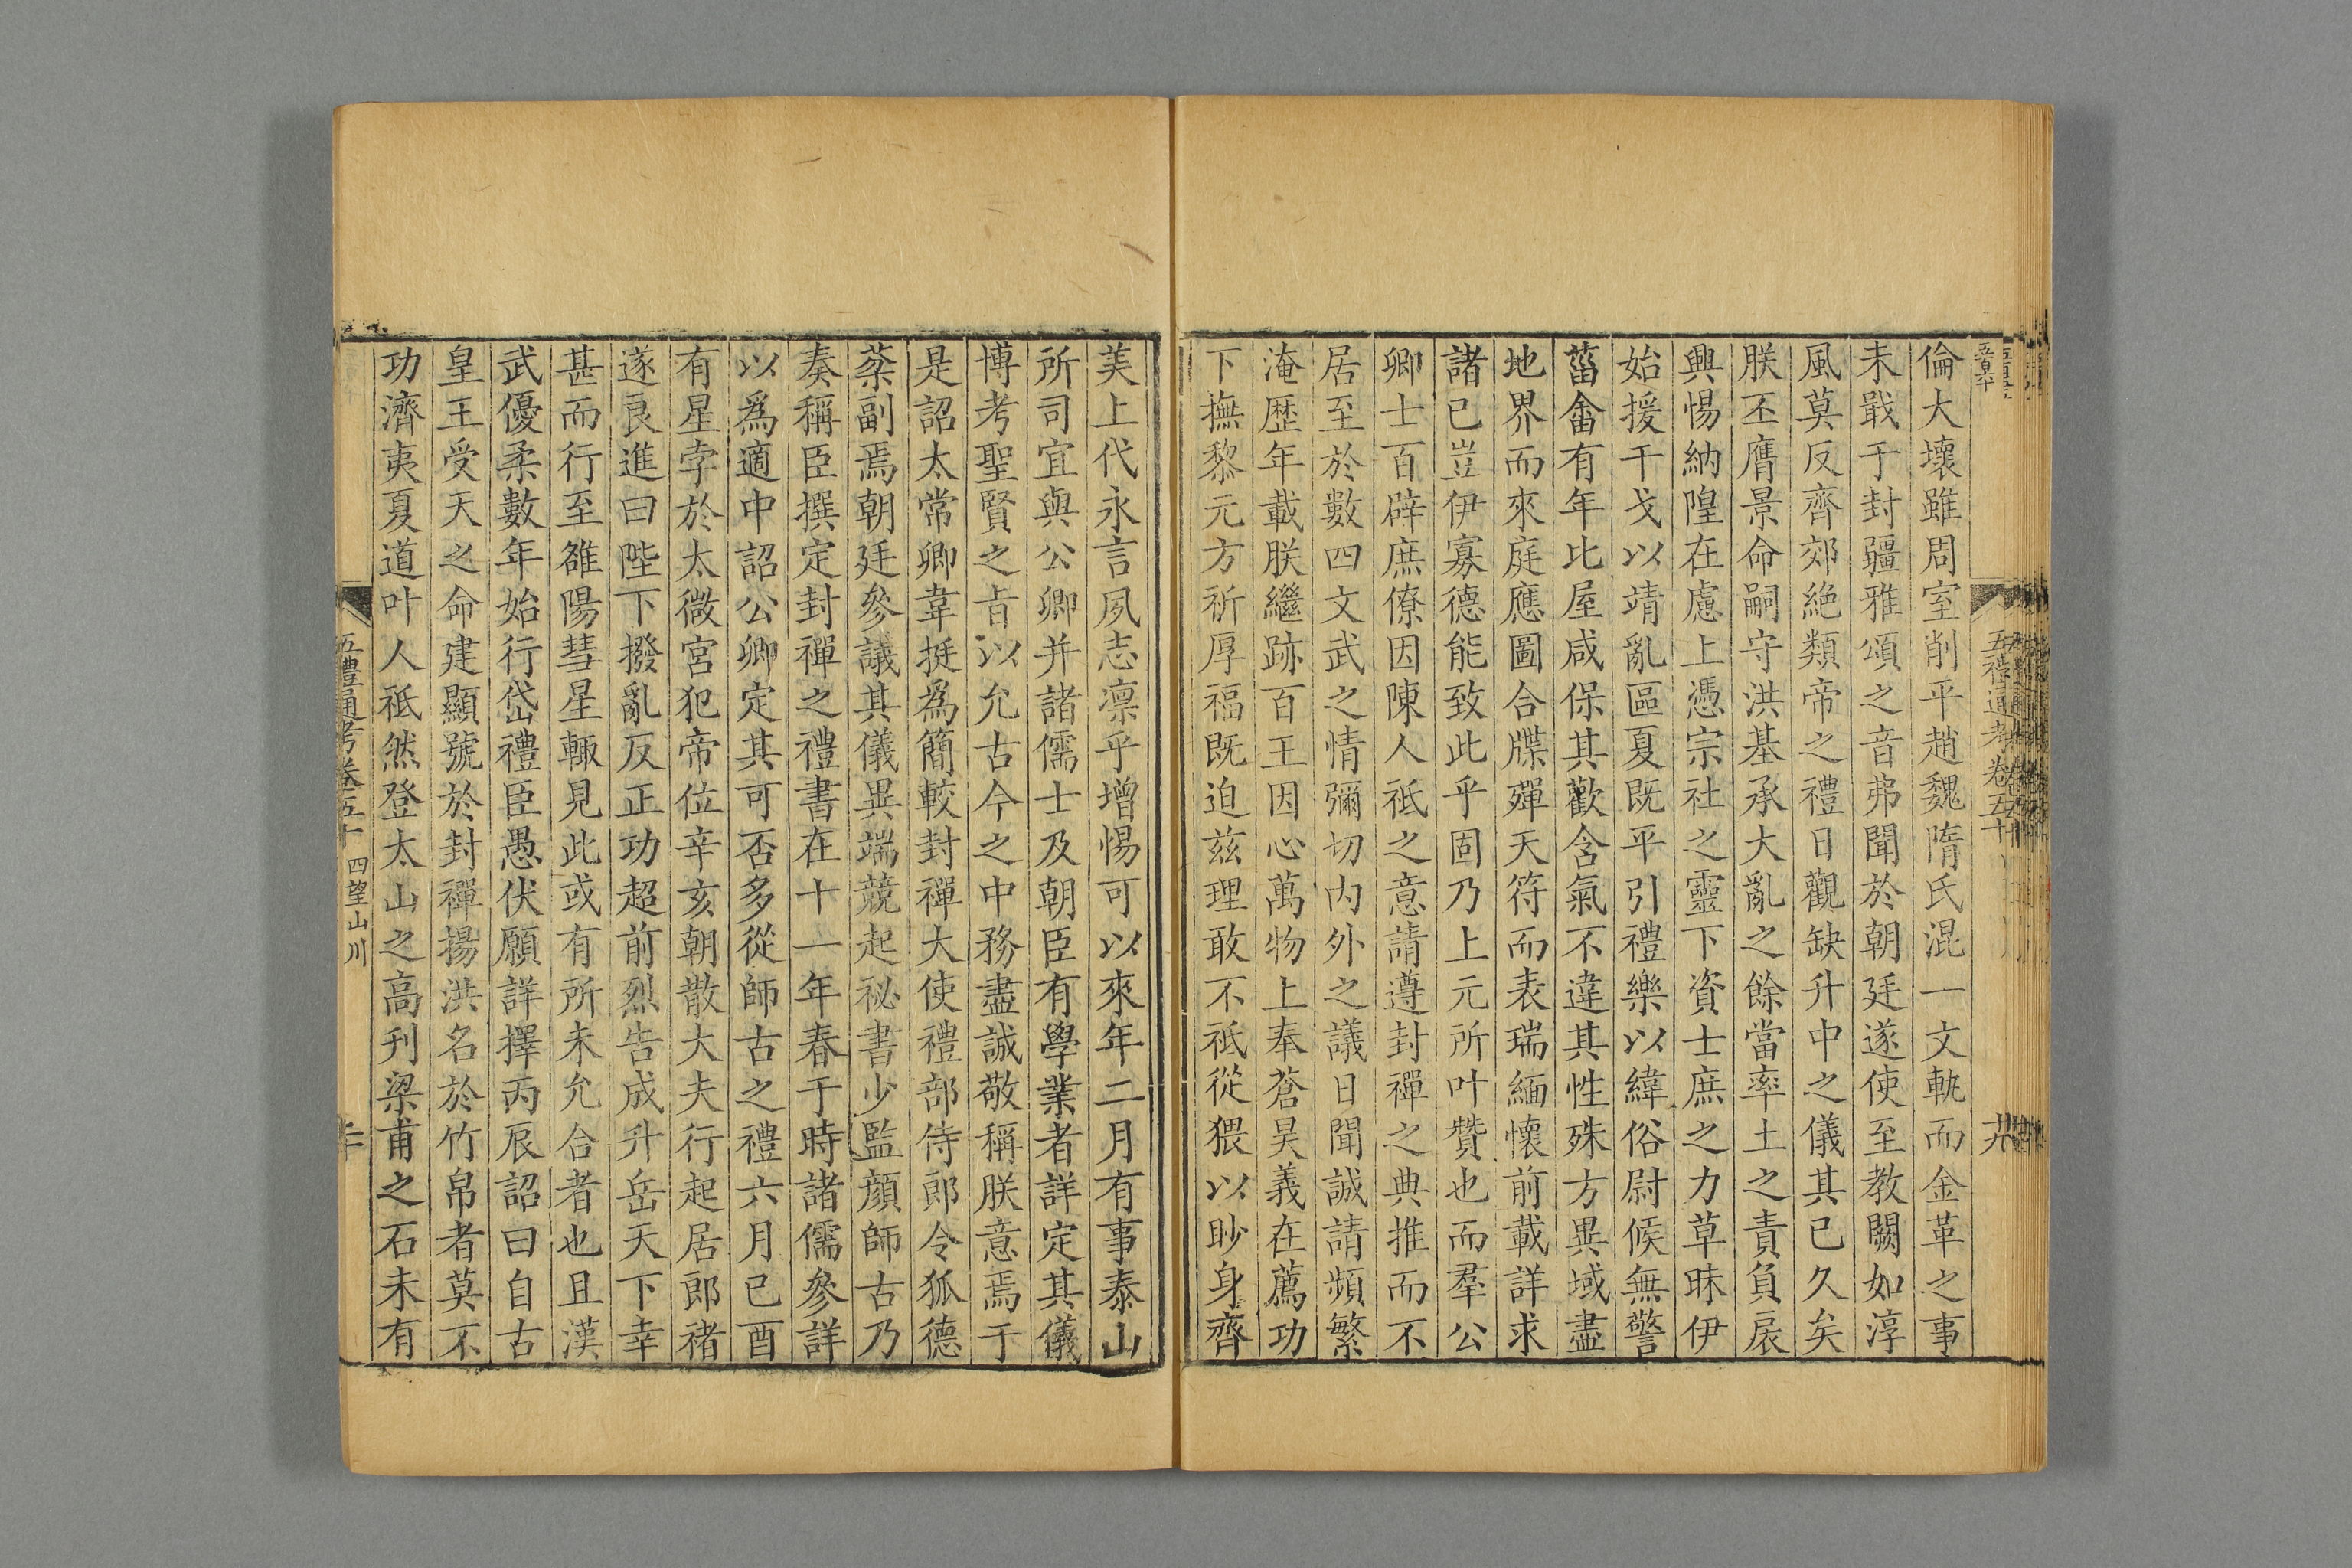 五禮通考卷五十
十九
倫大壞雖周室削平趙魏隋氏混一文軌而金革之事
未戢于封疆雅頌之音弗聞於朝廷遂使至教闕如淳
風莫反齊郊絶類帝之禮日觀缺升中之儀其已久矣
朕丕膺景命嗣守洪基承大亂之餘當率土之責負扆
興惕納隍在慮上憑宗社之靈下資士庶之力草昧伊
始援干戈以靖亂區夏既平引禮樂以緯俗尉候無警
菑畬有年比屋咸保其歡含氣不違其性殊方異域盡
地界而來庭應圖合牒殫天符而表瑞緬懷前載詳求
諸已豈伊寡德能致此乎固乃上元所叶贊也而羣公
卿士百辟庶僚因陳人祗之意請遵封禪之典推而不
居至於數四文武之情彌切内外之議日聞誠請頻繁
淹歴年載朕繼跡百王因心萬物上奉蒼昊義在薦功
下撫黎元方祈厚福既迫兹理敢不祗從猥以眇身齊
美上代永言夙志凛乎增惕可以來年二月有事泰山
所司宜與公卿并諸儒士及朝臣有學業者詳定其儀
博考聖賢之旨以允古今之中務盡誠敬稱朕意焉于
是詔太常卿韋挺爲簡較封禪大使禮部侍郎令狐德
棻副焉朝廷參議其儀異端競起祕書少監顔師古乃
奏稱臣撰定封禪之禮書在十一年春于時諸儒參詳
以爲適中詔公卿定其可否多從師古之禮六月已酉
有星孛於太微宮犯帝位辛亥朝散大夫行起居郎褚
遂良進曰陛下撥亂反正功超前烈告成升岳天下幸
甚而行至雒陽彗星輙見此或有所未允合者也且漢
武優柔數年始行岱禮臣愚伏願詳擇丙辰詔曰自古
皇王受天之命建顯號於封禪揚洪名於竹帛者莫不
功濟夷夏道叶人祗然登太山之高刊梁甫之石未有
五禮通考卷五十 四望山川
二十